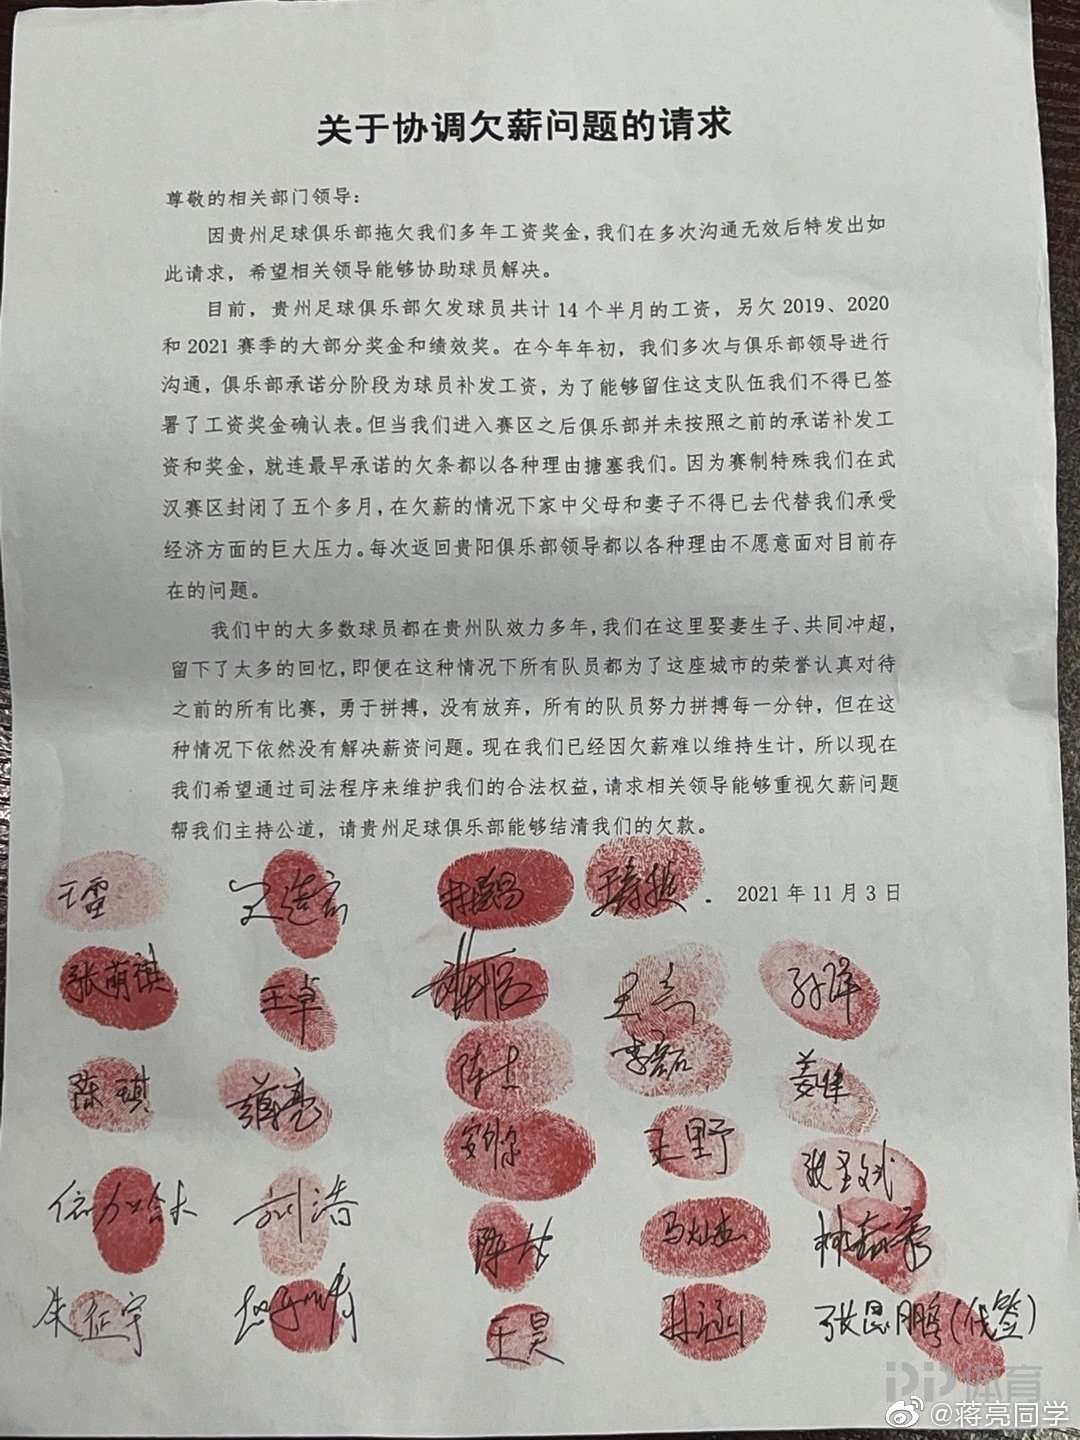 关于协调欠薪问题的请求
尊敬的相关部门领导：
因贵州足球俱乐部拖欠我们多年工资奖金，我们在多次沟通无效后特发出如
此请求，希望相关领导能够协助球员解决。
目前，贵州足球俱乐部欠发球员共计 14 个半月的工资，另欠 2019、2020
和 2021 赛季的大部分奖金和绩效奖。在今年年初，我们多次与俱乐部领导进行
沟通，俱乐部承诺分阶段为球员补发工资，为了能够留住这支队伍我们不得已签
署了工资奖金确认表。但当我们进入赛区之后俱乐部并未按照之前的承诺补发工
资和奖金，就连最早承诺的欠条都以各种理由搪塞我们。因为赛制特殊我们在武
汉赛区封闭了五个多月，在欠薪的情况下家中父母和妻子不得已去代替我们承受
经济方面的巨大压力。每次返回贵阳俱乐部领导都以各种理由不愿意面对目前存
在的问题。
我们中的大多数球员都在贵州队效力多年，我们在这里娶妻生子、共同冲超，
留下了太多的回忆，即便在这种情况下所有队员都为了这座城市的荣誉认真对待
之前的所有比赛，勇于拼搏，没有放弃，所有的队员努力拼搏每一分钟，但在这
种情况下依然没有解决薪资问题。现在我们已经因欠薪难以维持生计，所以现在
我们希望通过司法程序来维护我们的合法权益，请求相关领导能够重视欠薪问题
帮我们主持公道，请贵州足球俱乐部能够结清我们的欠款。
2021 年 11 月 3 日
王雷
张萌琪 王卓 孙洋
陈琪 蒋亮 陈杰 李磊 姜峰
王野
刘浩 马灿杰
朱征宇 王昊 孙涵 张昆鹏（代签）
PP体育
@蒋亮同学